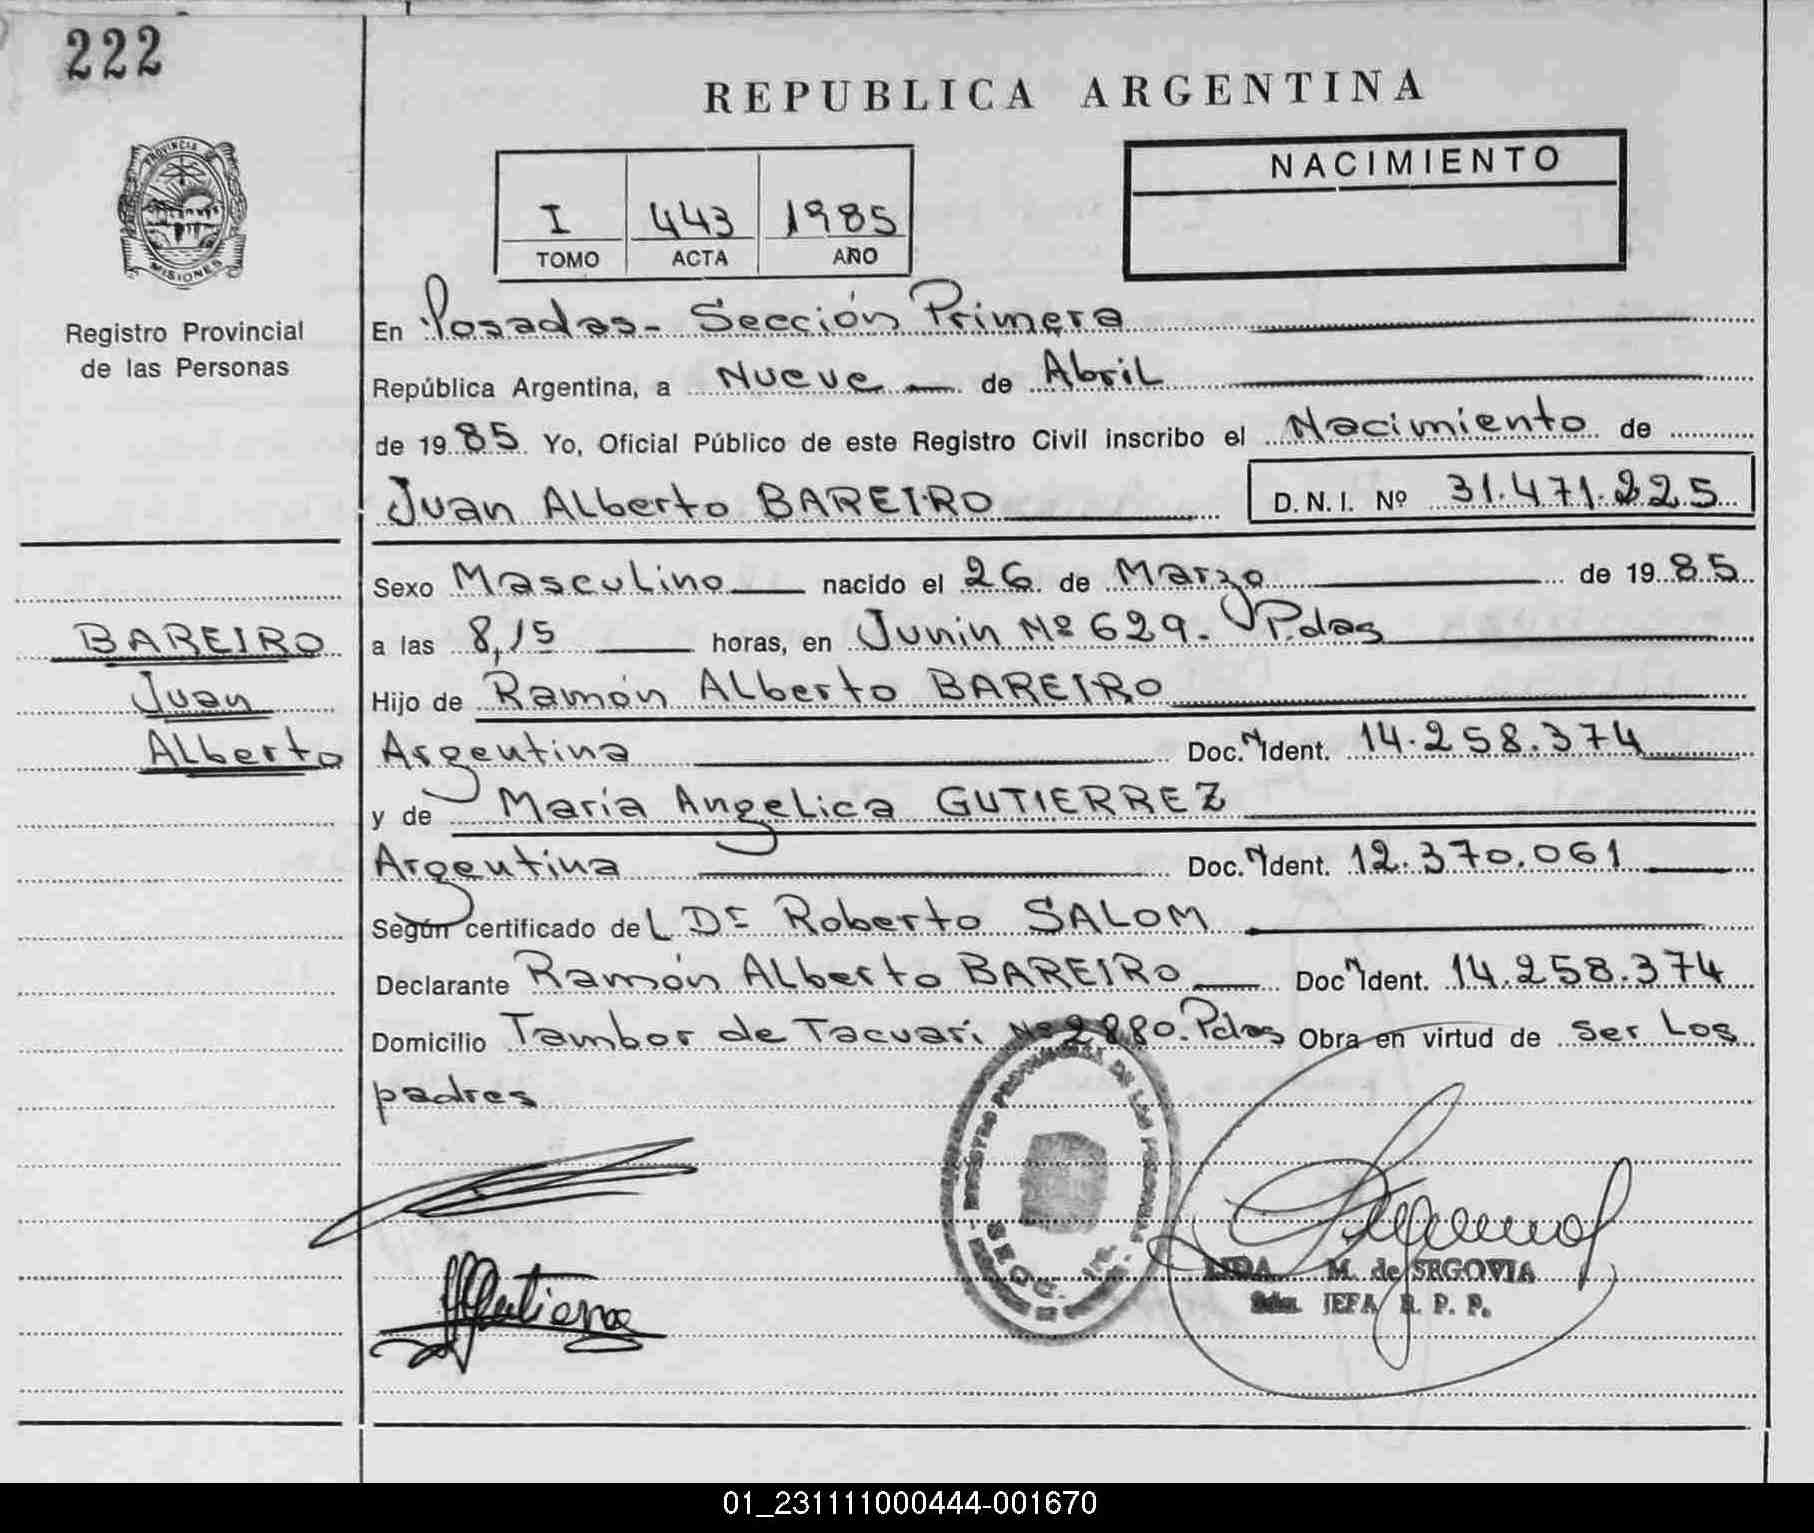 222
REPUBLICA ARGENTINA
PROVINCIA DE
MISIONES
Registro Provincial
de las Personas
I 443 1985
TOMO ACTA AÑO
NACIMIENTO
En Posadas- Sección Primera
República Argentina, a Nueve de Abril
de 1985 Yo, Oficial Público de este Registro Civil inscribo el Nacimiento de
Juan Alberto BAREIRO D. N. I. Nº 31.471.225
Sexo Masculino nacido el 26 de Marzo de 1985
BAREIRO
Juan
Alberto
a las 8,15 horas, en Junin Nº 629. Pdas
Hijo de Ramón Alberto BAREIRO
Argentina Doc. Ident. 14.258.374
y de María Angelica GUTIERREZ
Argentina Doc. Ident. 12.370.061
Según certificado del Dr Roberto SALOM
Declarante Ramón Alberto BAREIRO Doc Ident. 14.258.374
Domicilio Tambor de Tacuari Nº 2880. Pdas Obra en virtud de ser Los
padres
REGISTRO PROVINCIAL DE LAS PERSONAS
SECC. 1ra.
LIDA M. de SEGOVIA
JEFA R. P. P.
01_231111000444-001670